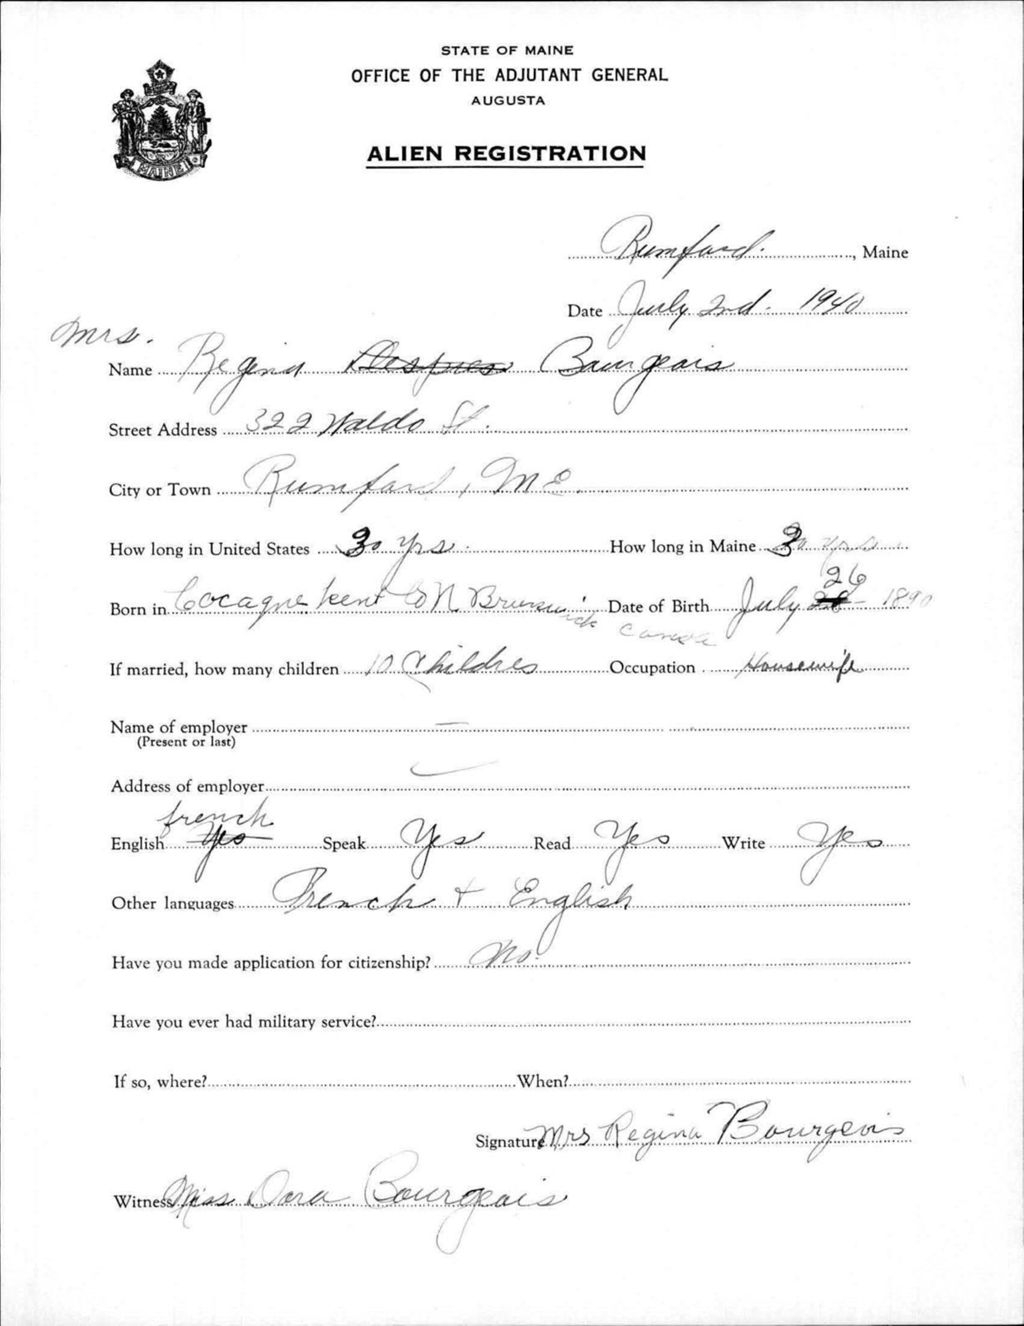 STATE OF MAINE
OFFICE OF THE ADJUTANT GENERAL
AUGUSTA
MAINE
ALIEN REGISTRATION
Rumford, Maine
Date July 2nd. 1940
Mrs.
Name Regina Despres Bourgeois
Street Address 322 Waldo St.
City or Town Rumford, ME.
How long in United States 30 yrs. How long in Maine 30 yrs
Born in Cocagne Kent Co N. Brunswick Canada Date of Birth July 26 1890
If married, how many children 10 Childres Occupation Housewife
Name of employer —
(Present or last)
Address of employer
french
English Yes Speak Yes Read Yes Write Yes
Other languages French + English
Have you made application for citizenship? No.
Have you ever had military service?
If so, where? When?
Signature Mrs Regina Bourgeois
Witness Miss Dora Bourgeois